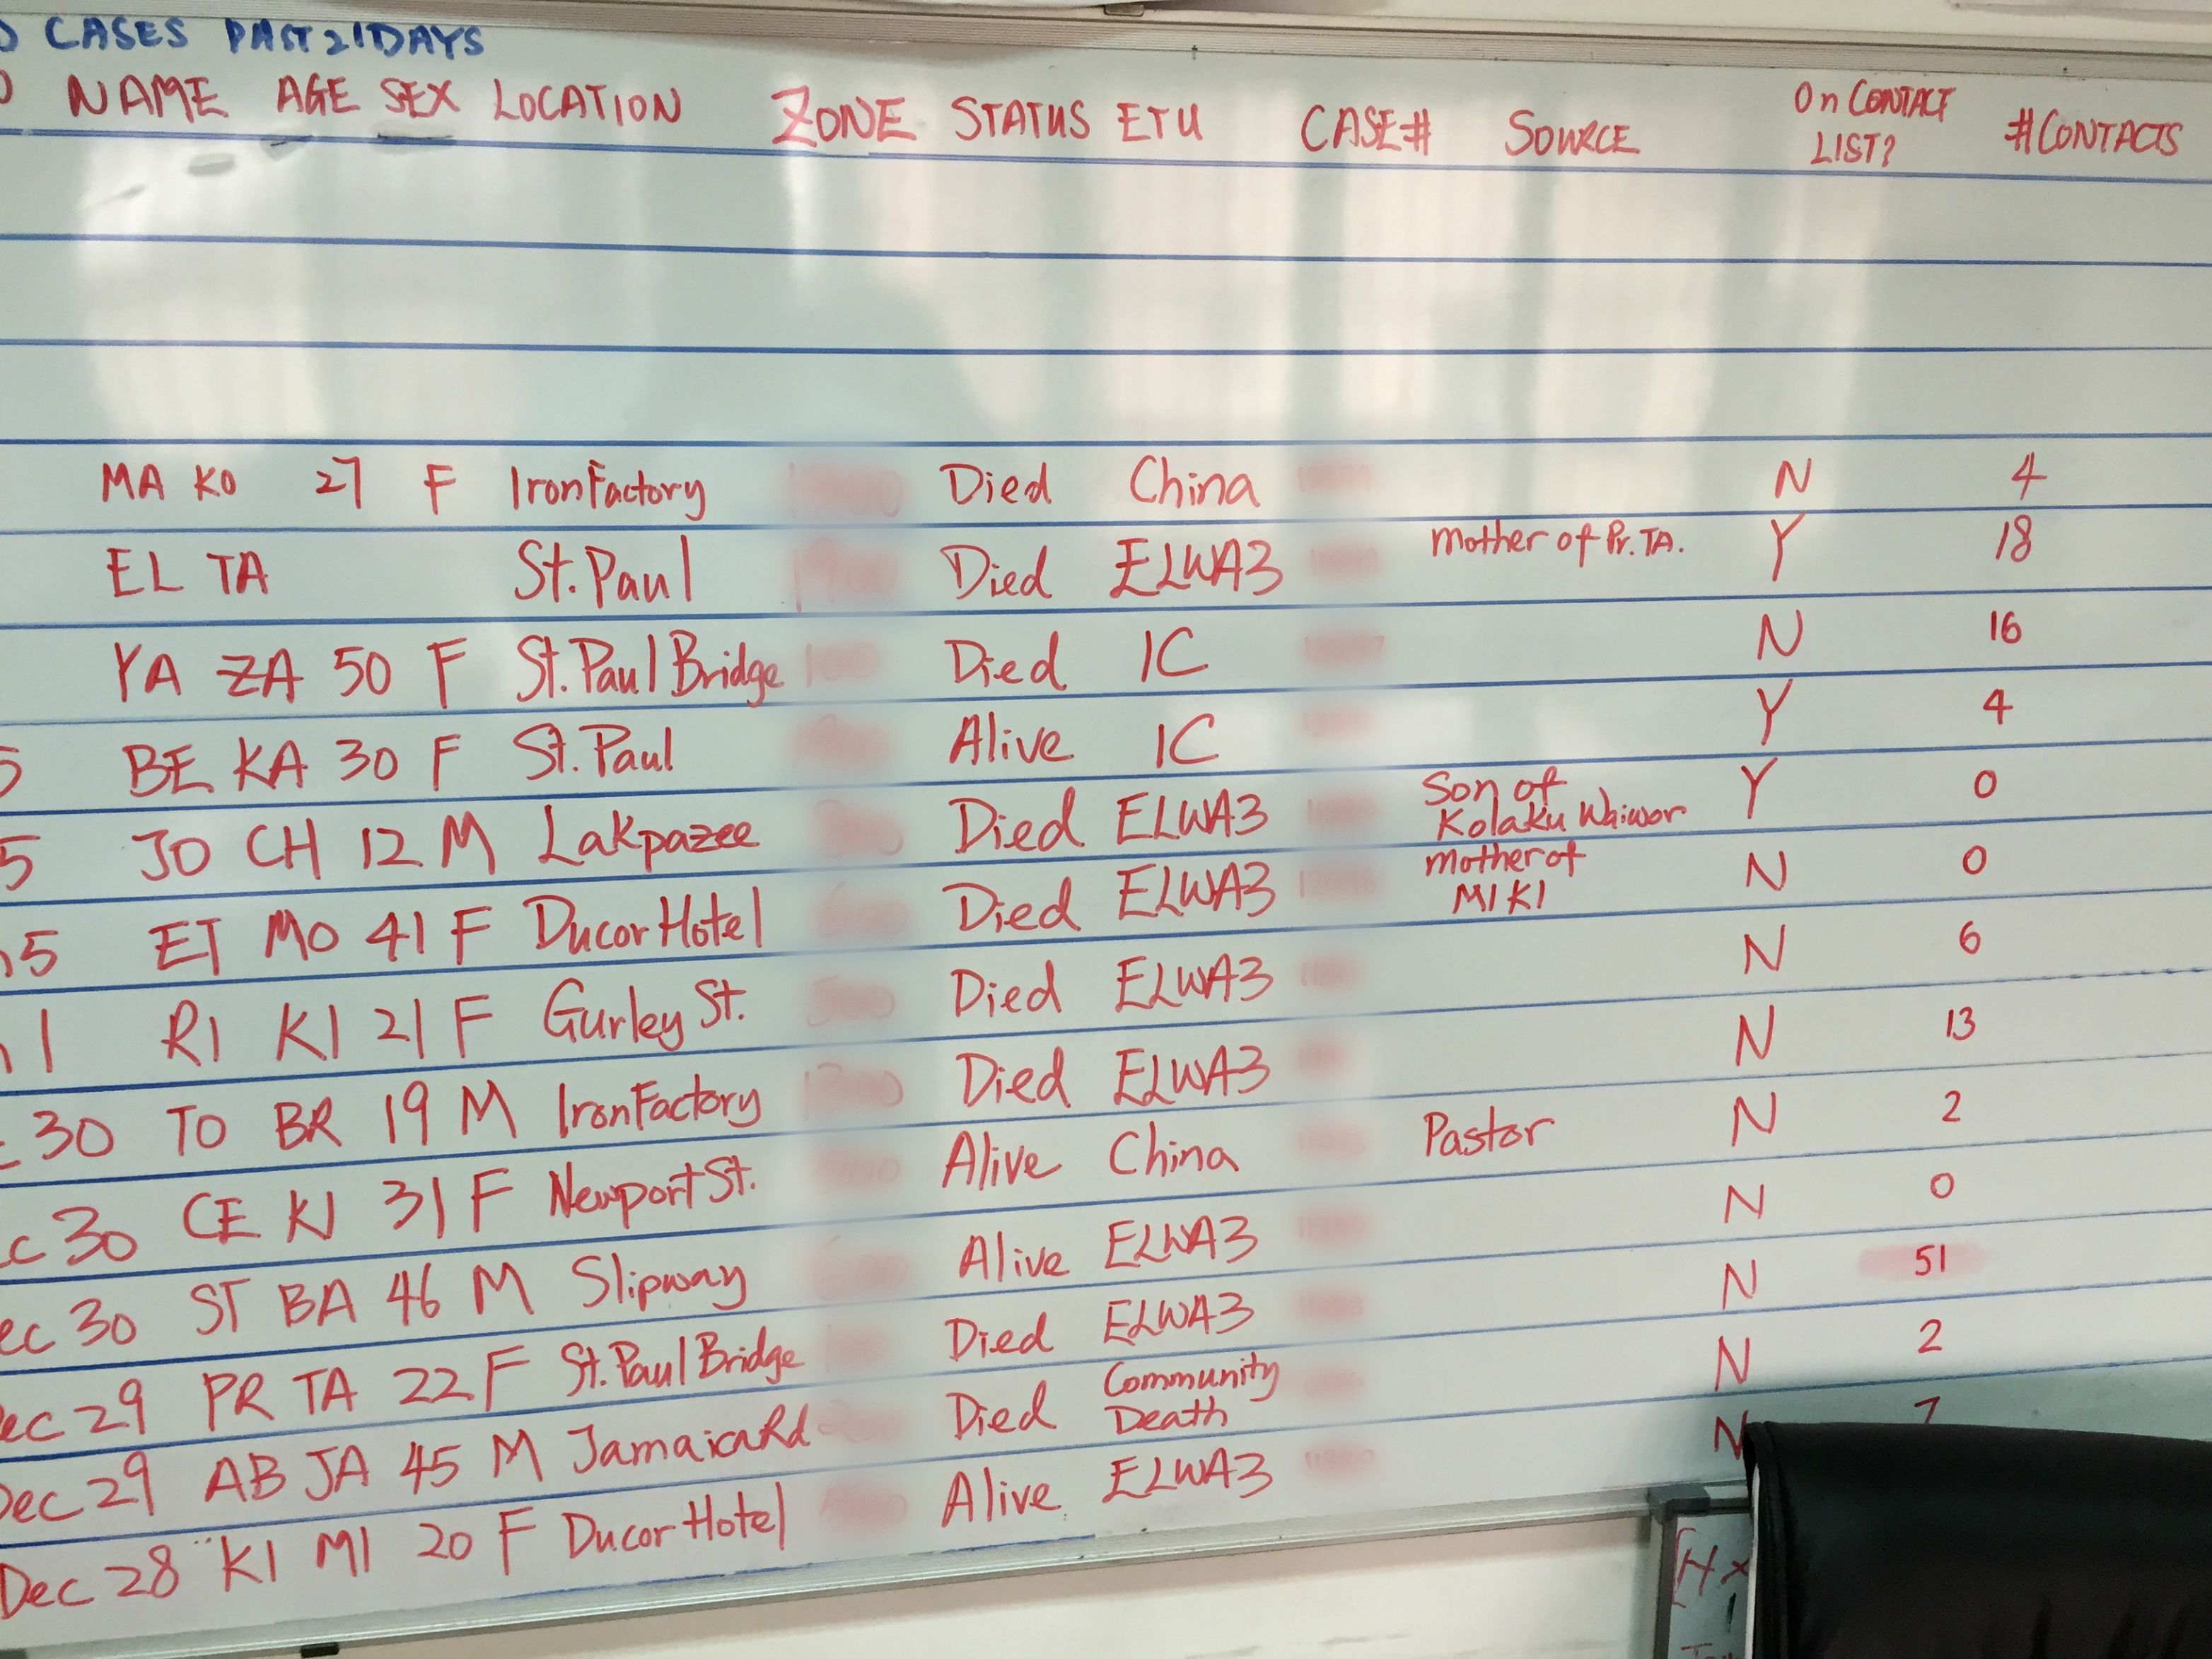 CASES PAST 21 DAYS
NAME AGE SEX LOCATION ZONE STATUS ETU CASE# SOURCE On CONTACT LIST? #CONTACTS
MA KO 27 F Iron Factory Died China N 4
EL TA St. Paul Died ELWA3 mother of Pr. TA. Y 18
YA ZA 50 F St. Paul Bridge Died IC N 16
5 BE KA 30 F St. Paul Alive IC Y 4
5 JO CH 12 M Lakpazee Died ELWA3 Son of Kolaku Waiwor Y 0
5 ET MO 41 F Ducor Hotel Died ELWA3 mother of MI KI N 0
1 RI KI 21 F Gurley St. Died ELWA3 N 6
30 TO BR 19 M Iron Factory Died ELWA3 N 13
c 30 CE KI 31 F Newport St. Alive China Pastor N 2
ec 30 ST BA 46 M Slipway Alive ELWA3 N 0
ec 29 PR TA 22 F St. Paul Bridge Died ELWA3 N 51
Dec 29 AB JA 45 M Jamaica Rd Died Community Death N 2
Dec 28 KI MI 20 F Ducor Hotel Alive ELWA3 N 7
Hx